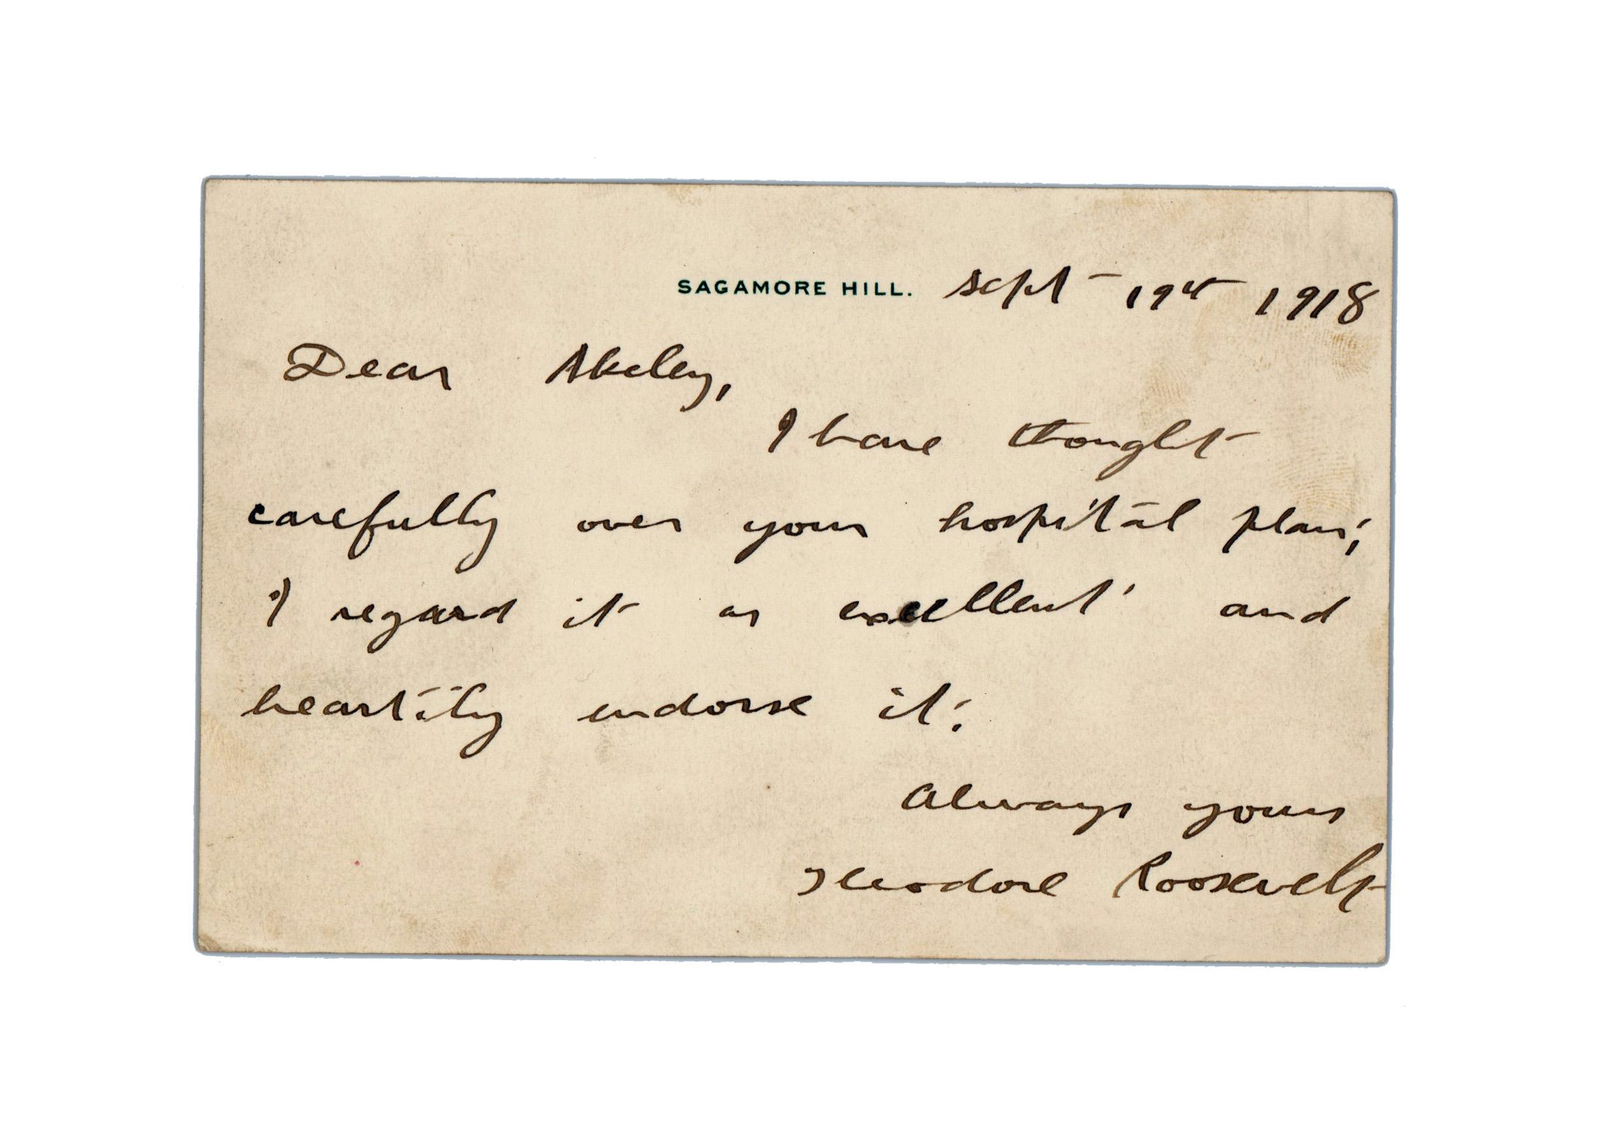 SAGAMORE HILL. Sept 19th 1918
Dear Akeley,
I have thought
carefully over your hospital plan;
I regard it as excellent and
heartily endorse it.
Always yours
Theodore Roosevelt